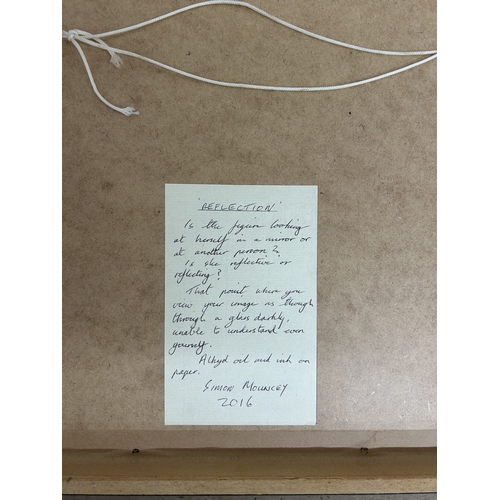 'REFLECTION'
Is the figure looking
at herself in a mirror or
at another person?
Is she reflective or
reflecting?
That point where you
view your image as though
through a glass darkly,
unable to understand even
yourself.
Alkyd oil and ink on
paper.
SIMON MOUNCEY
2016